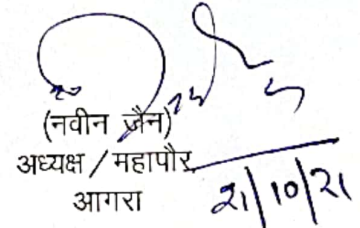 (नवीन जैन)
अध्यक्ष / महापौर
आगरा
21/10/21